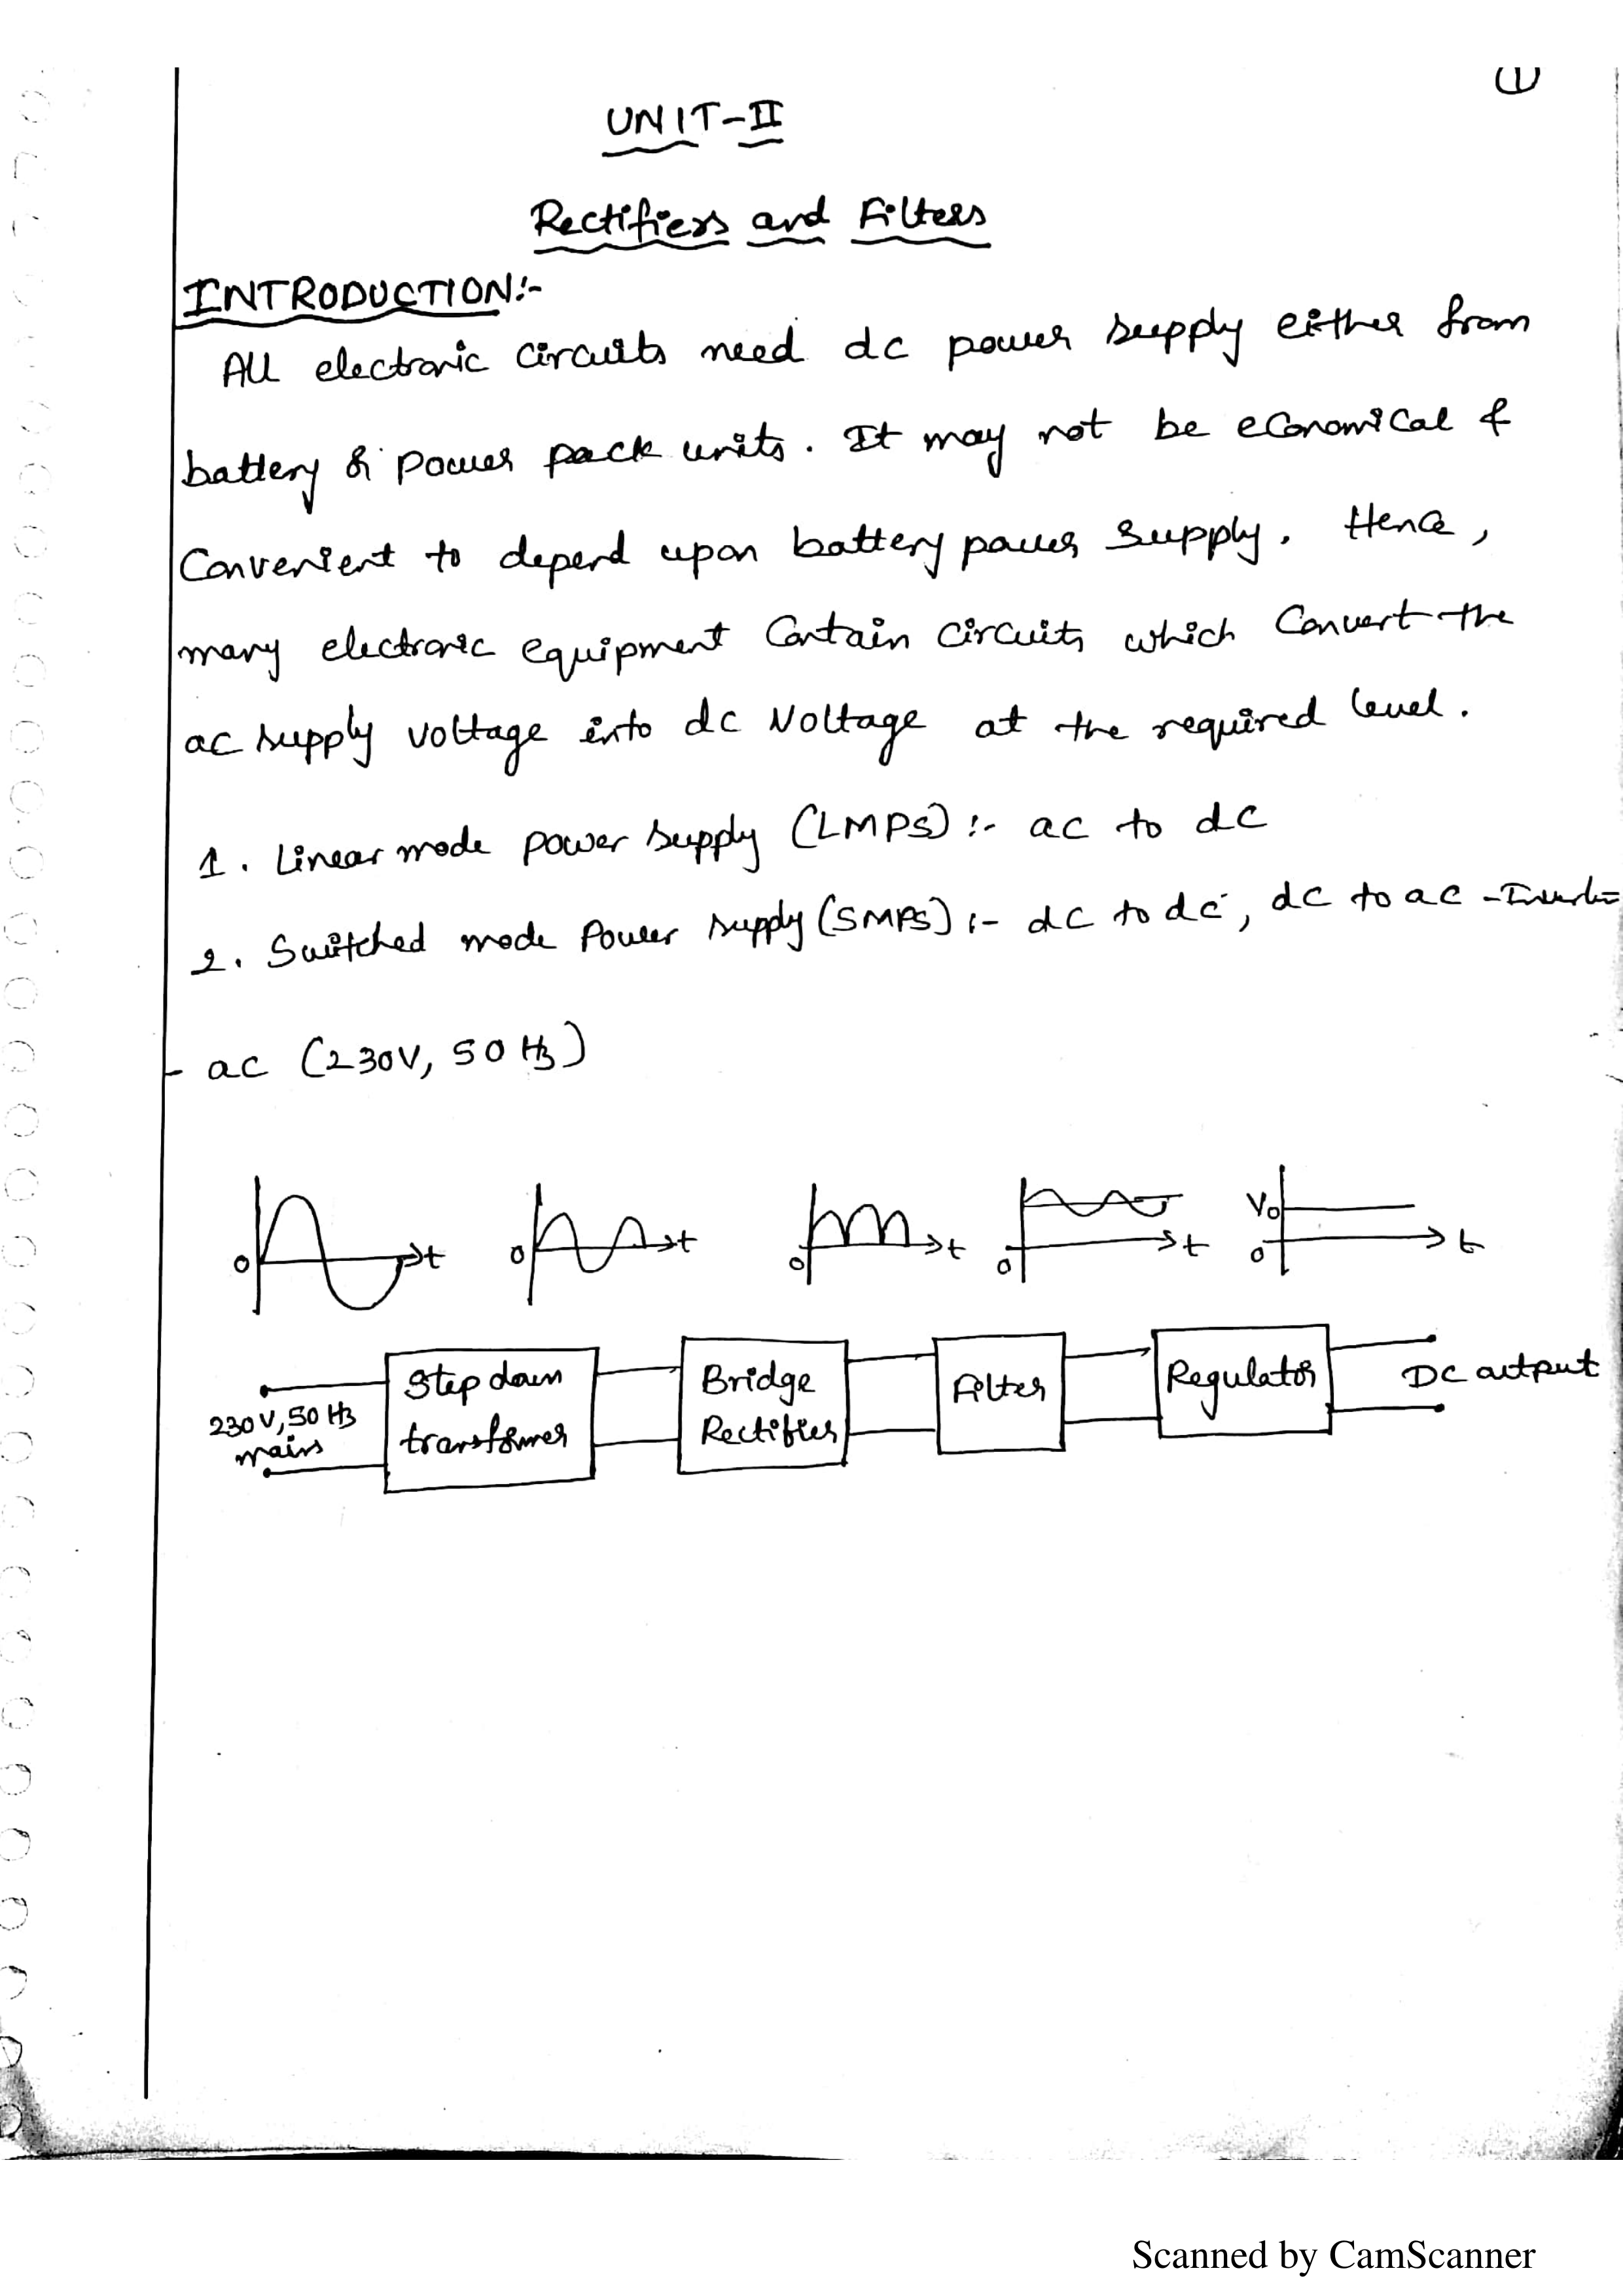 1
UNIT-II
Rectifiers and Filters
INTRODUCTION:-
All electronic circuits need dc power supply either from
battery or power pack units. It may not be economical &
Convenient to depend upon battery power supply. Hence,
many electronic equipment Contain circuits which Convert the
ac supply voltage into dc Voltage at the required level.
1. Linear mode power supply (LMPS) :- ac to dc
2. Switched mode Power supply (SMPS) :- dc to dc, dc to ac -
- ac (230V, 50 Hz)
0 t 0 t 0 t 0 t V₀ 0 t
230 V, 50 Hz
mains
Step down
transformer
Bridge
Rectifier
Filter
Regulator
DC output
Scanned by CamScanner